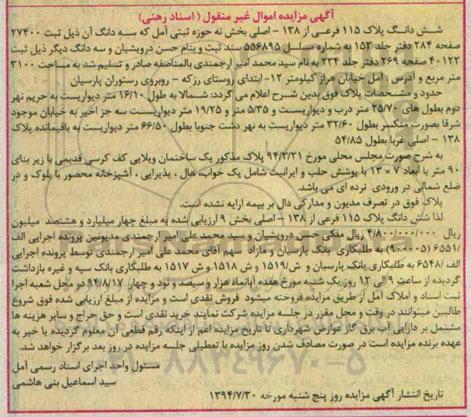 آگهی مزایده اموال غیر منقول ( اسناد رهنی)
شش دانگ پلاک ۱۱۵ فرعی از ۱۳۸ – اصلی بخش نه حوزه ثبتی آمل که سه دانگ آن ذیل ثبت ۲۷۴۰۰
صفحه ۲۸۴ دفتر جلد ۱۵۲ به شماره مسلسل ۵۵۶۸۹۵ سند ثبت و بنام حسن درویشیان و سه دانگ دیگر ذیل ثبت
۴۰۱۲۲ صفحه ۲۶۹ دفتر جلد ۲۳۴ به نام سید محمد امیر ارجمندی بالمناصفه صادر و تسلیم شد به مساحت ۳۱۰۰
متر مربع و ادرس : امل خیابان هراز کیلومتر ۱۲- ابتدای روستای رزکه - روبروی رستوران پارسیان
حدود و مشخصات پلاک فوق بدین شرح اعلام می گردد: شمالا به طول ۱۶/۱۰ متر دیواریست به حریم نهر
دوم بطول های ۲۵/۷۰ متر درب و دیواریست و ۵/۳۵ متر و ۱۹/۲۵ متر دیواریست سه جز اخیر به خیابان موجود
شرقا بصورت منکسر بطول ۳۲/۶۰ متر دیواریست به نهر دشت جنوبا بطول ۶۶/۵۰ متر دیواریست به باقیمانده پلاک
۱۳۸ - اصلی غربا بطول ۵۴/۸۵
به شرح صورت مجلس محلی مورخ ۹۴/۳/۲۱ پلاک مذکور یک ساختمان ویلایی کف کرسی قدیمی با زیر بنای
۹۰ متر با ابعاد ۷ × ۱۳ با پوشش حلب و ایرانیت شامل یک خواب، هال ، پذیرایی ، آشپزخانه محصور با بلوک و در
ضلع شمالی در ورودی نرده ای می باشد.
پلاک فوق در تصرف مدیون و مدارکی دال بر بیمه ارایه نشده است.
لذا شش دانگ پلاک ۱۱۵ فرعی از ۱۳۸ – اصلی بخش ۹ ارزیابی شده به مبلغ چهار میلیارد و هشتصد میلیون
ریال ۴/۸۰۰/۰۰۰/۰۰۰ ریال ملکی حسن درویشیان و سید محمد علی امیر ارجمندی مدیونین پرونده اجرایی الف
/۶۵۵۱ (۹۰۰۰۰۵) به طلبکاری بانک پارسیان و مازاد سهم آقای محمد علی امیر ارجمندی توسط پرونده اجرایی
الف /۶۵۴۸ به طلبکاری بانک پارسیان و ش/۱۵۱۹ و ش ۱۵۱۸ و ش ۱۵۱۷ به طلبکاری بانک سپه و غیره بازداشت
گردیده از ساعت ۹ الی ۱۲ روز یک شنبه مورخ هفده آبانماه هزار و سیصد و نود و چهار ۹۴/۸/۱۷ در محل شعبه اجرا
ثبت اسناد و املاک آمل از طریق مزایده فروخته میشود فروش نقدی است و مزایده از مبلغ ارزیابی شده فوق شروع
طالبین میتوانند در وقت و محل مقرر در جلسه مزایده شرکت نمایند خرید نقدی است و حق حراج و سایر هزینه ها
مشتمل بر دارایی اب برق گاز عوارض شهرداری تا تاریخ مزایده اعم از اینکه رقم قطعی آن معلوم گردیده یا خیر به
عهده برنده مزایده است در صورت مصادف شدن روز مزایده با تعطیلی جلسه مزایده در روز بعد برگزار خواهد شد.
مسئول واحد اجرای اسناد رسمی آمل
سید اسماعیل بنی هاشمی
تاریخ انتشار آگهی مزایده روز پنج شنبه مورخه ۱۳۹۴/۷/۳۰